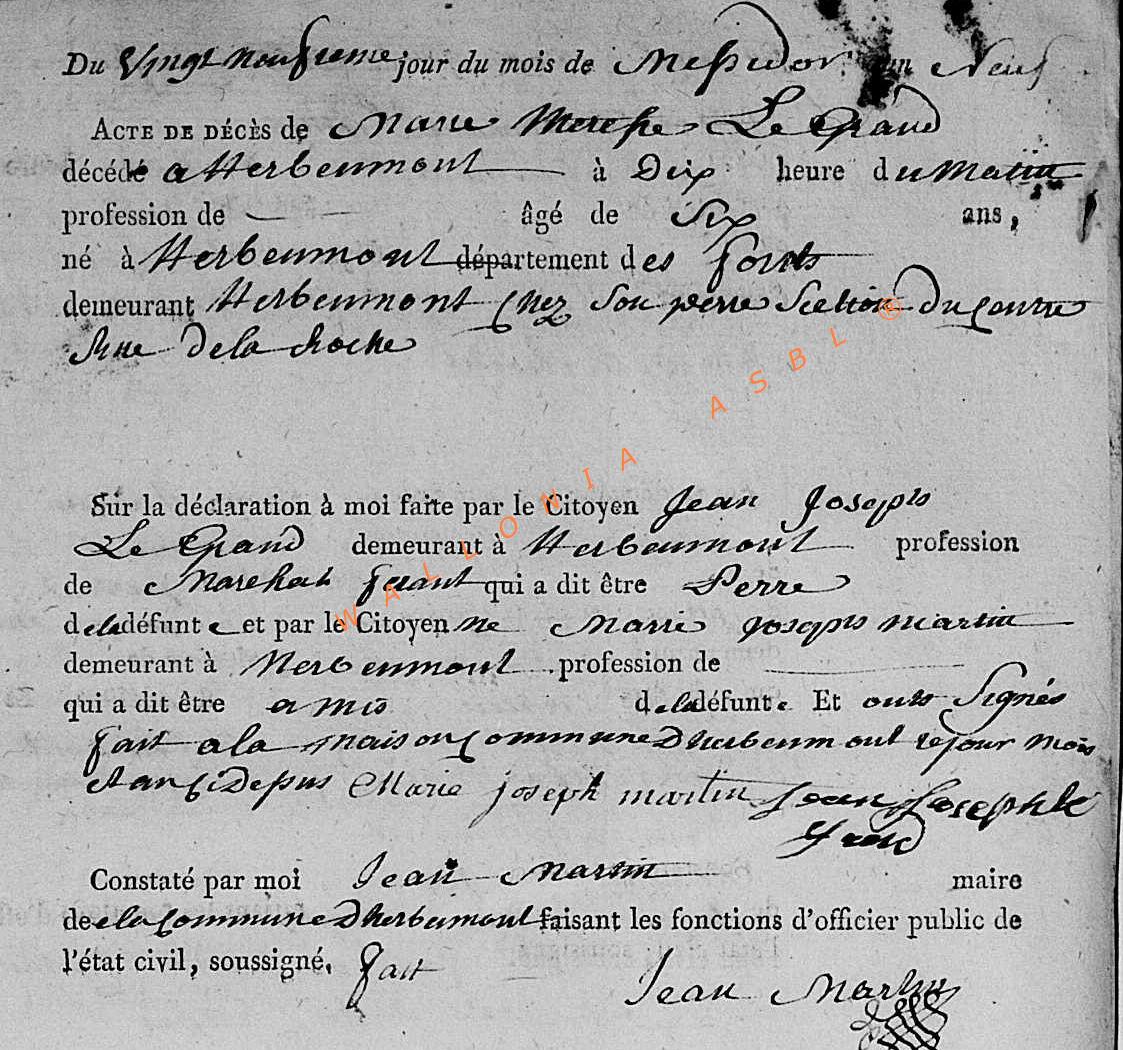 Du Vingt neufieme jour du mois de Messidor an Neuf
ACTE DE DÉCÈS de Marie therese Le Grand
décédé a Herbeumont à Dix heure du Matin
profession de âgé de Six ans,
né à Herbeumont département des forets
demeurant Herbeumont Chez Son perre Section du Centre
Rue de la Roche
Sur la déclaration à moi faite par le Citoyen Jean Joseph
Le Grand demeurant à Herbeumont profession
de Marehal ferant qui a dit être Perre
de la défunte et par le Citoyenne Marie Joseph martin
demeurant à Herbeumont profession de
qui a dit être amis de la défunte. Et onts Signés
fait a la maison Commune Dherbeumont le jour mois
et an Ci Depus Marie joseph martin Jean Joseph le
grand
Constaté par moi Jean Martin maire
de la Commune Dherbeumont faisant les fonctions d'officier public de
l'état civil, soussigné, fait
Jean Martin
WALLONIA ASBL ®